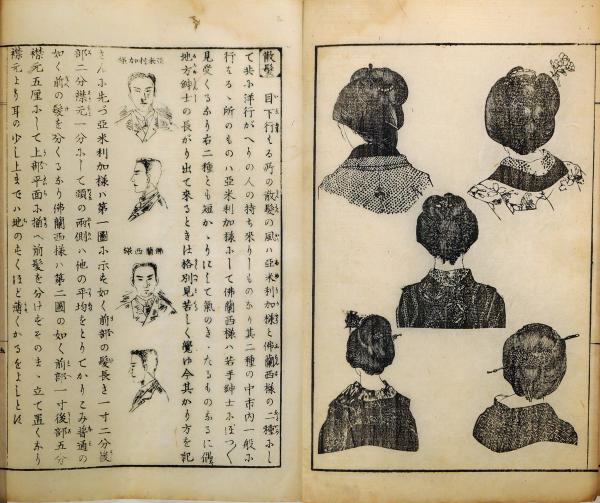 散髪 目下行はるゝ所の散髪の風ハ亜米利加様と佛蘭西様の二種にし
て共に洋行がへりの人の持ち来りしものなり其二種の中市内一般に
行はるゝ所のものハ亜米利加様にして佛蘭西様ハ若手紳士にぼつ〱
見受くるなり右二種とも短かゝりにして氣のきゝたるものなるに偶
地方紳士の長がり出て来るときは格別見苦しく覚ゆ今其かり方を記
亜米利加様
佛蘭西様
さんに先づ亜米利加様ハ第一圖に示す如く前部の髪長さ一寸二分後
部二分襟元一分にして頭の両側ハ他の平均をとりてかりこみ普通の
如く前の髪を分くるなり佛蘭西様ハ第二圖の如く前部一寸後部五分
襟元五厘にして上部平面に揃へ前髪を分けずそのまゝ立て置くなり
襟元より耳の少し上までハ地のすくほど薄くかるをよしとす